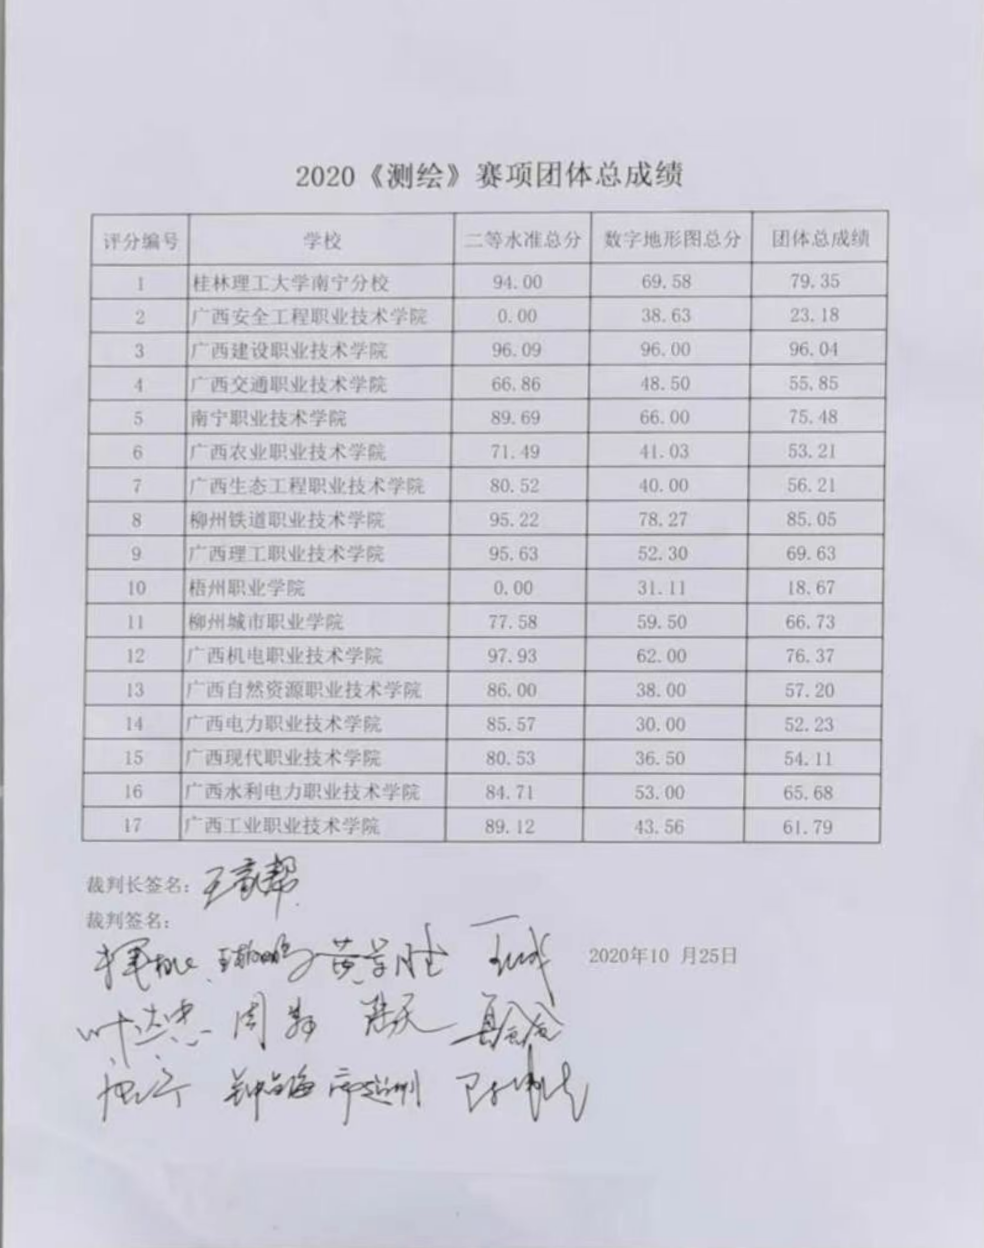 2020《测绘》赛项团体总成绩
评分编号 学校 二等水准总分 数字地形图总分 团体总成绩
1 桂林理工大学南宁分校 94.00 69.58 79.35
2 广西安全工程职业技术学院 0.00 38.63 23.18
3 广西建设职业技术学院 96.09 96.00 96.04
4 广西交通职业技术学院 66.86 48.50 55.85
5 南宁职业技术学院 89.69 66.00 75.48
6 广西农业职业技术学院 71.49 41.03 53.21
7 广西生态工程职业技术学院 80.52 40.00 56.21
8 柳州铁道职业技术学院 95.22 78.27 85.05
9 广西理工职业技术学院 95.63 52.30 69.63
10 梧州职业学院 0.00 31.11 18.67
11 柳州城市职业学院 77.58 59.50 66.73
12 广西机电职业技术学院 97.93 62.00 76.37
13 广西自然资源职业技术学院 86.00 38.00 57.20
14 广西电力职业技术学院 85.57 30.00 52.23
15 广西现代职业技术学院 80.53 36.50 54.11
16 广西水利电力职业技术学院 84.71 53.00 65.68
17 广西工业职业技术学院 89.12 43.56 61.79
裁判长签名：王家帮
裁判签名：
2020年10 月25日